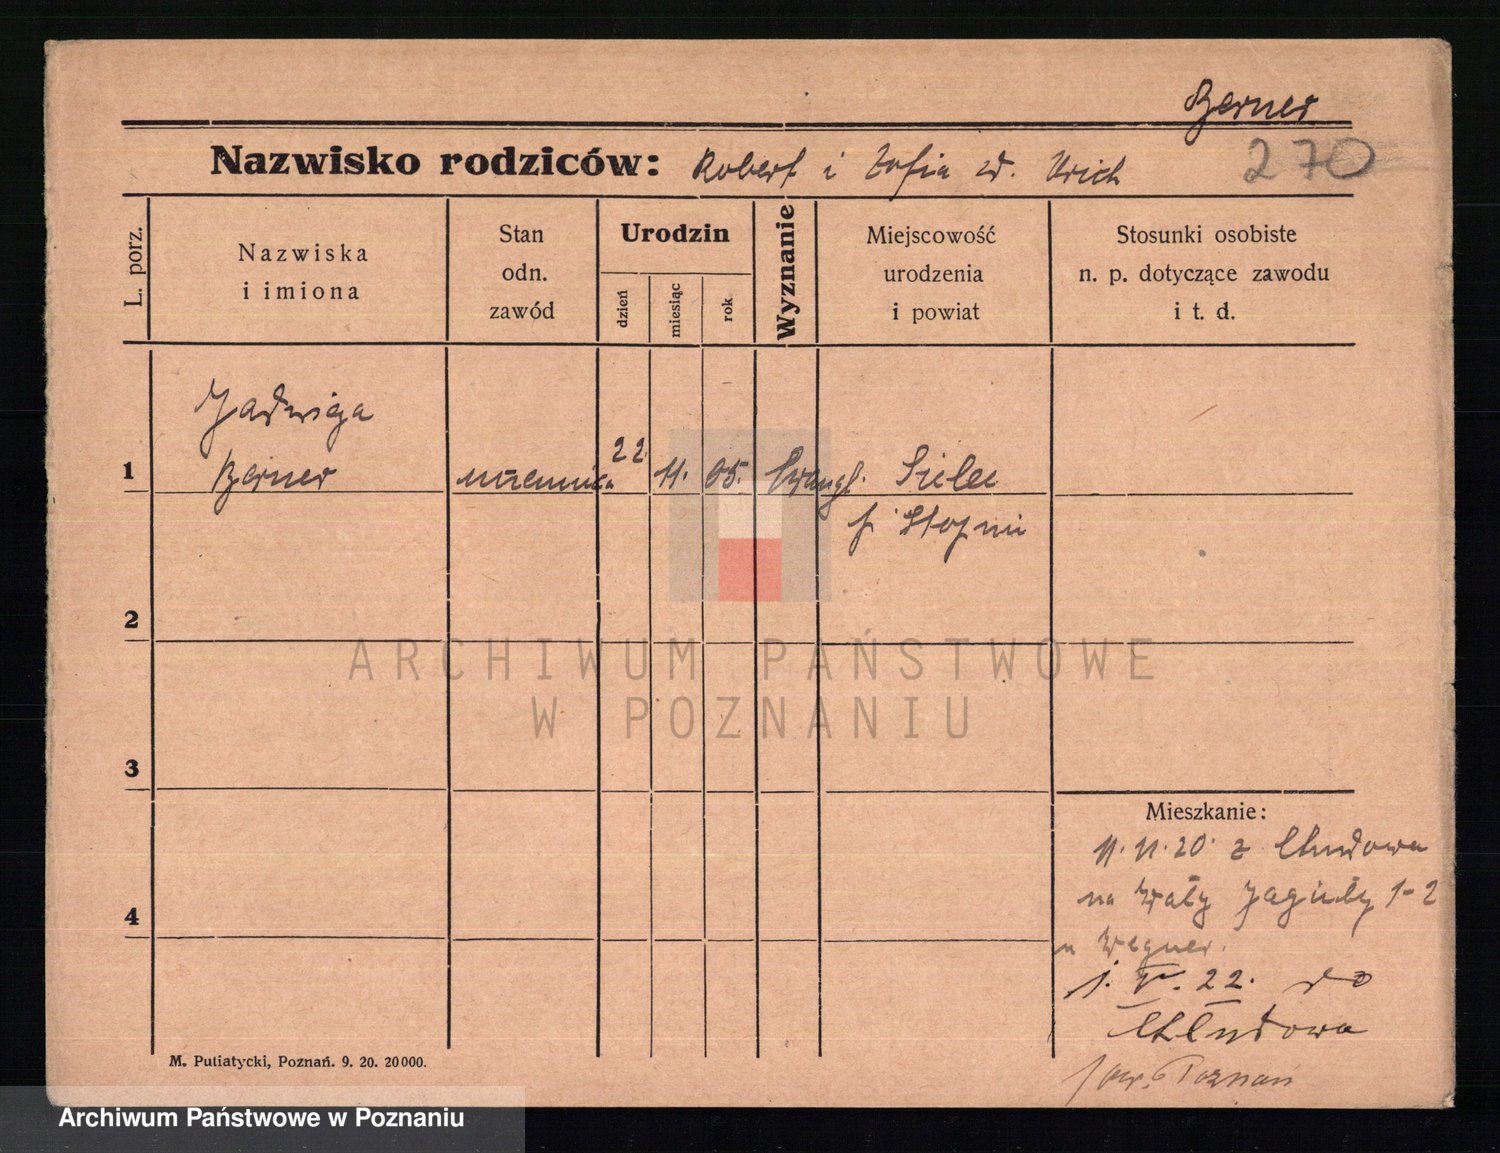 Berner
Nazwisko rodziców: Robert i Zofia zd. Urich
270
L. porz.
Nazwiska
i imiona
Stan
odn.
zawód
Urodzin
dzień
miesiąc
rok
Wyznanie
Miejscowość
urodzenia
i powiat
Stosunki osobiste
n. p. dotyczące zawodu
i t. d.
Jadwiga
1 Berner uczennica 22 11. 05. Ewangl. Sielec
p. Stopni
2
3
4
Mieszkanie:
11.11.20. z Chudowa
na Wały Jagiełły 1-2
u Wegner.
1. V. 22. do
Chłudowa
pow. Poznań
M. Putiatycki, Poznań. 9. 20. 20000.
ARCHIWUM PAŃSTWOWE
W POZNANIU
Archiwum Państwowe w Poznaniu